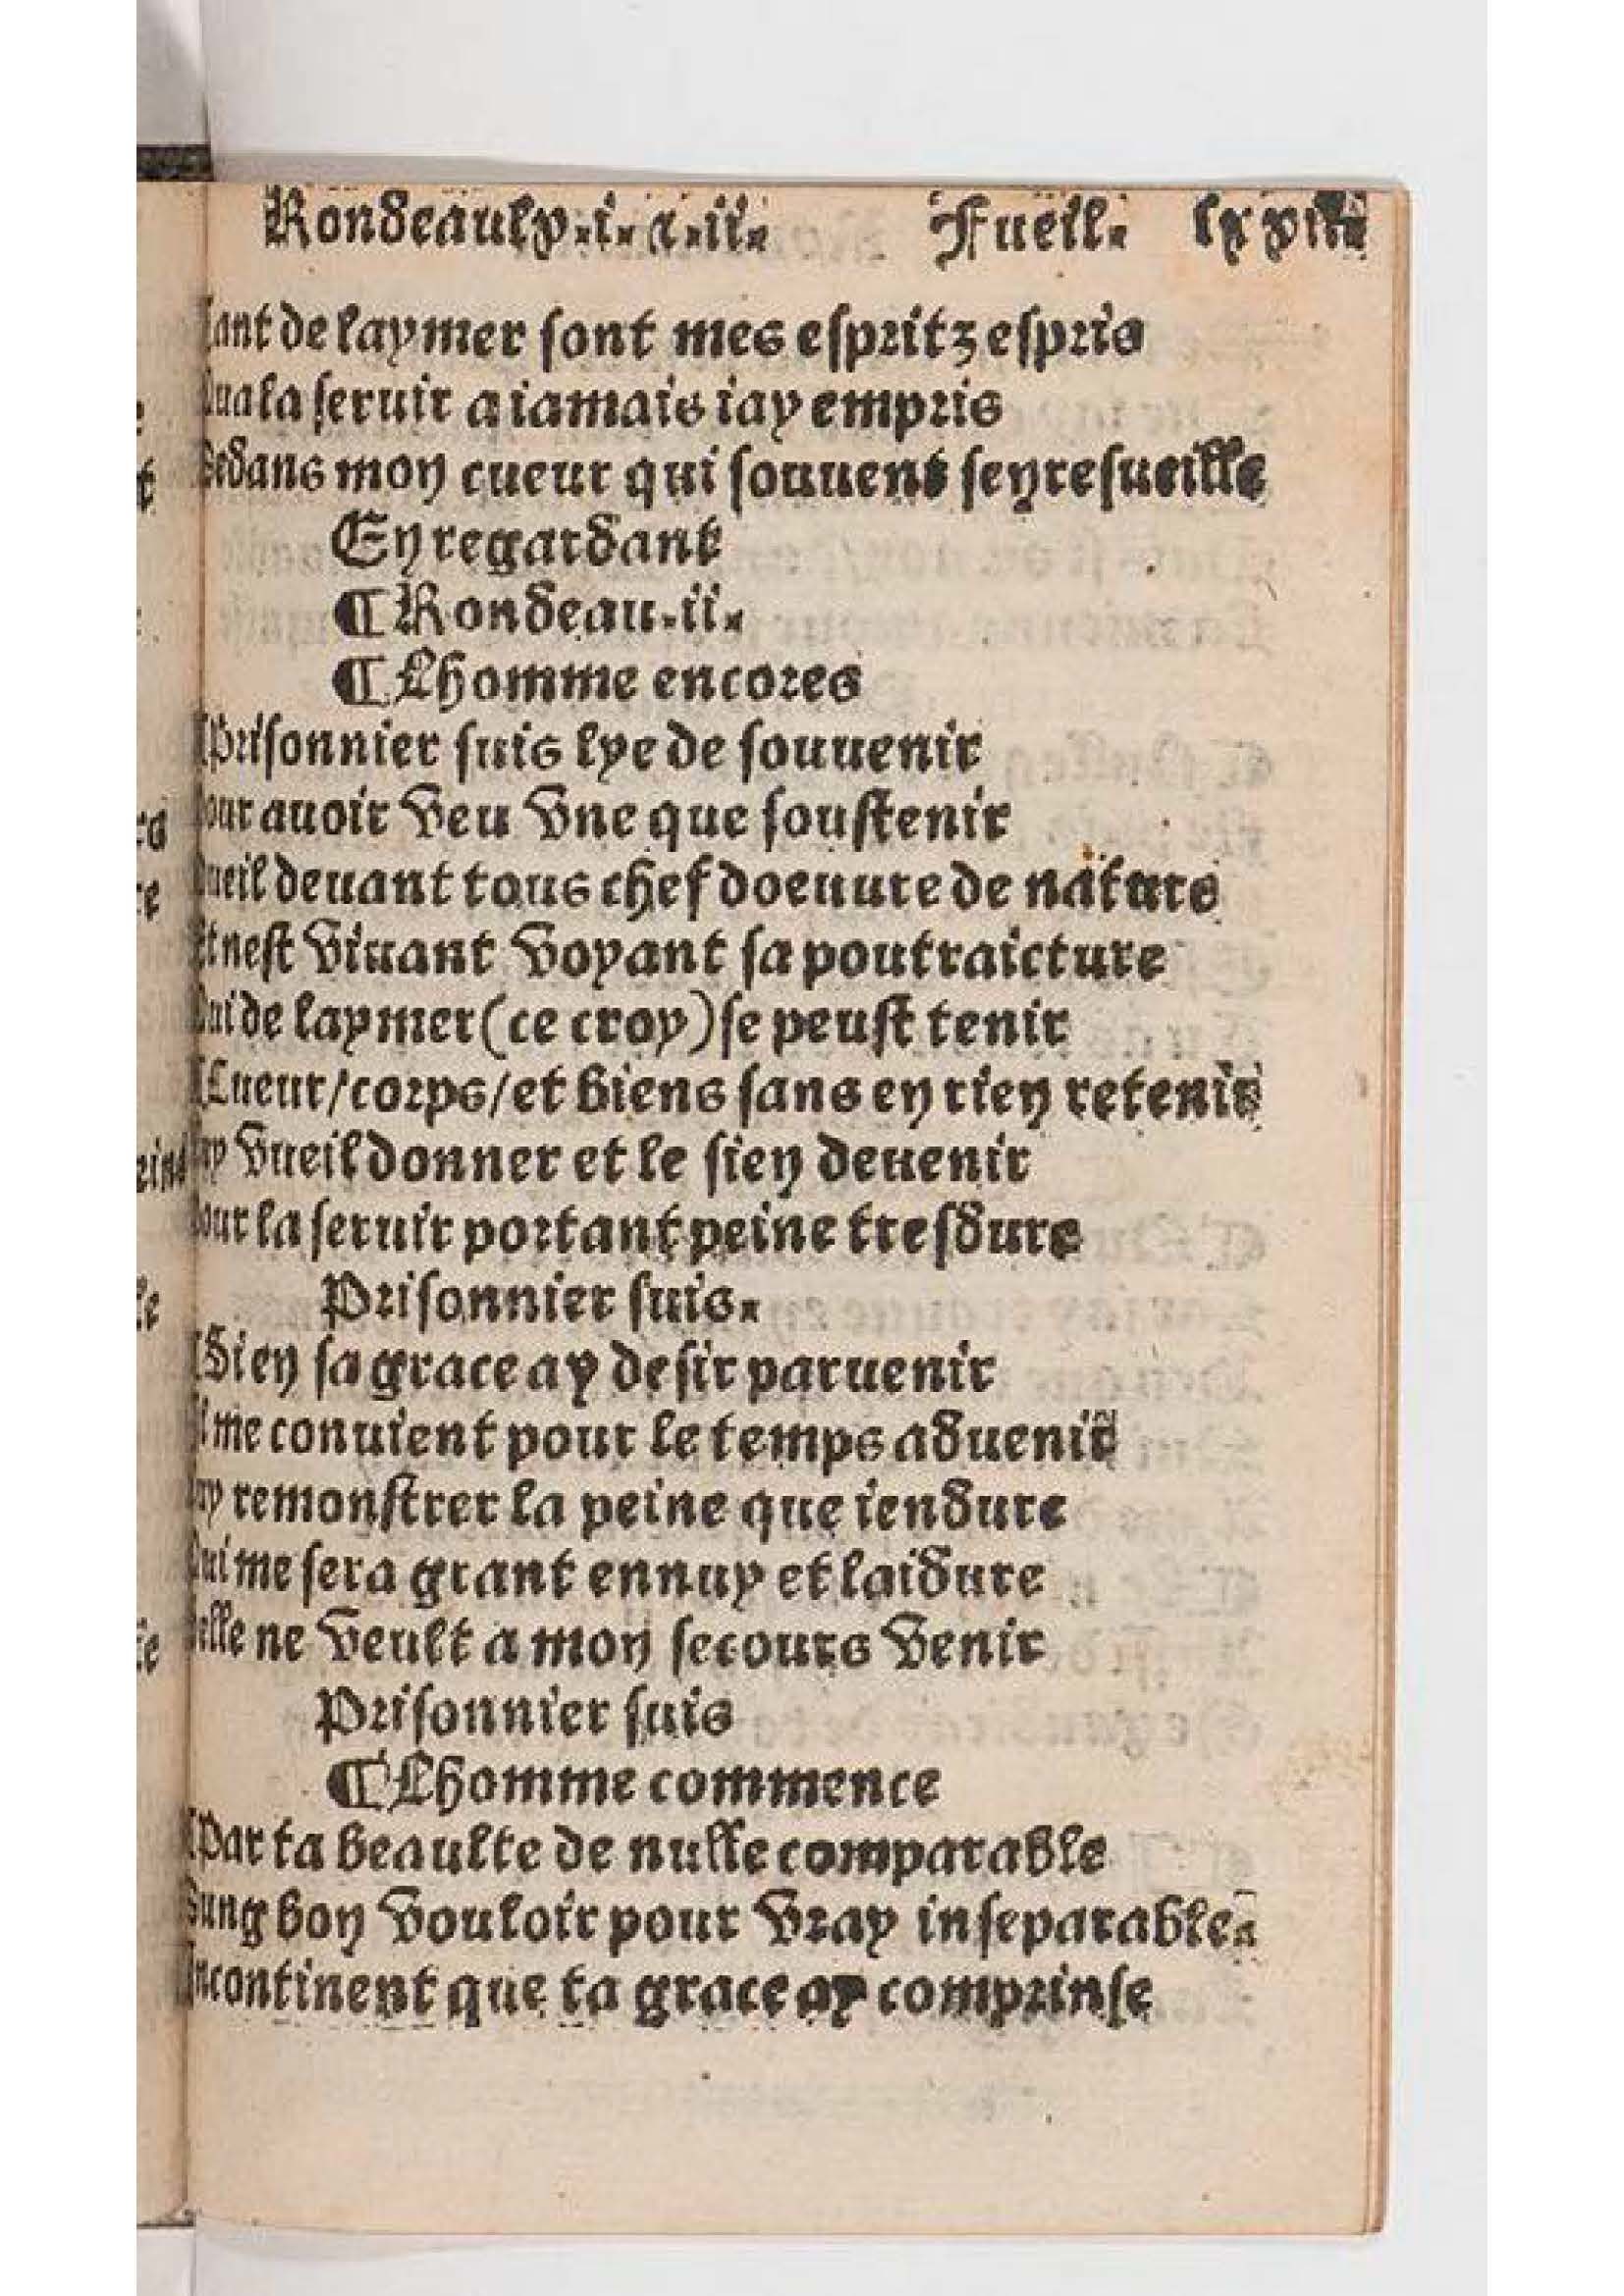 Rondeaulx.i. ⁊.ii. Fueil.
Tant de laymer sont mes espritz espris
Qua la seruir a iamais iay empris
Dedans mon cueur qui souuent sen resueille
En regardant
¶ Rondeau.ii.
¶ Lhomme encores
¶ Prisonnier suis lye de souuenir
Pour auoir veu vne que soustenir
Vueil deuant tous chef doeuure de nature
Et nest viuant voyant sa poutraicture
Qui de laymer (ce croy) se peust tenir
¶ Cueur/corps/et biens sans en rien retenir
Luy vueil donner et le sien deuenir
Pour la seruir portant peine tresdure
Prisonnier suis.
¶ Si en sa grace ay desir paruenir
Il me conuient pour le temps aduenir
Luy remonstrer la peine que iendure
Qui me sera grant ennuy et laidure
Selle ne veult a mon secours venir
Prisonnier suis
¶ Lhomme commence
¶ Par ta beaulte de nulle comparable
Dung bon vouloir pour vray inseparable.
Incontinent que ta grace ay comprinse